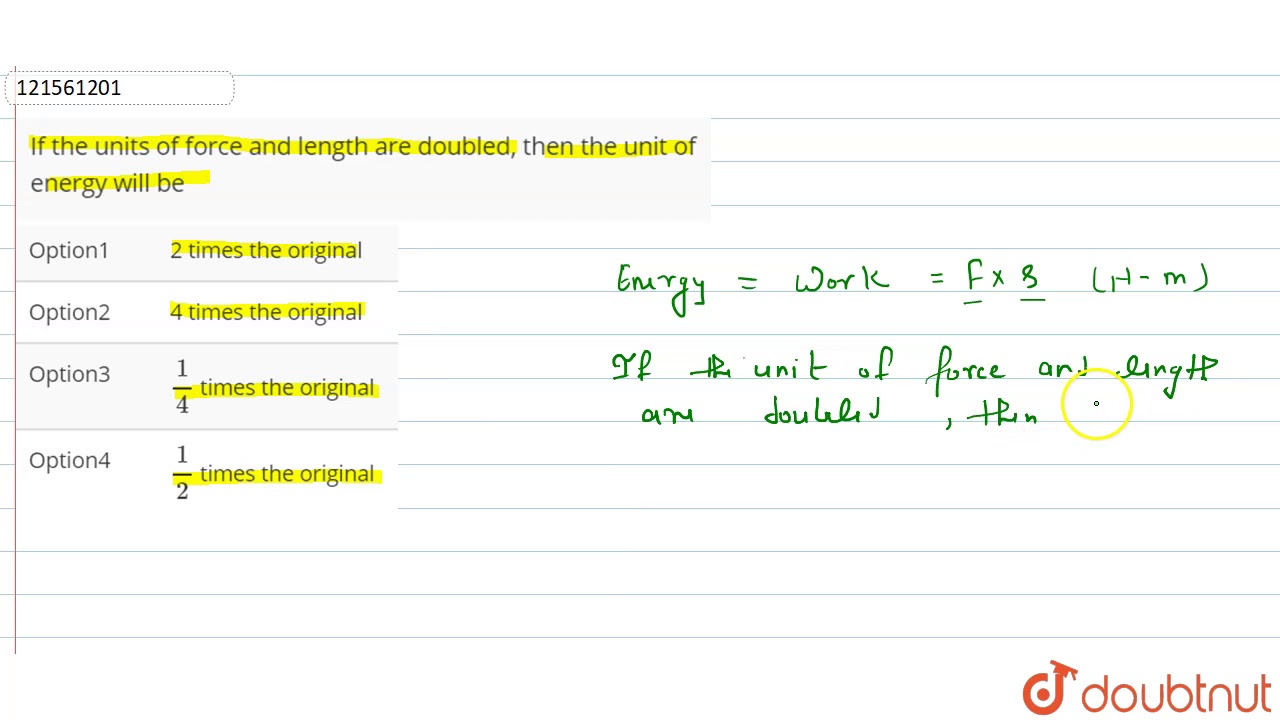 121561201
If the units of force and length are doubled, then the unit of
energy will be
Option1 2 times the original
Option2 4 times the original
Option3 1/4 times the original
Option4 1/2 times the original
Energy = Work = F x s (N-m)
If the unit of force and length
are doubled, then
doubtnut